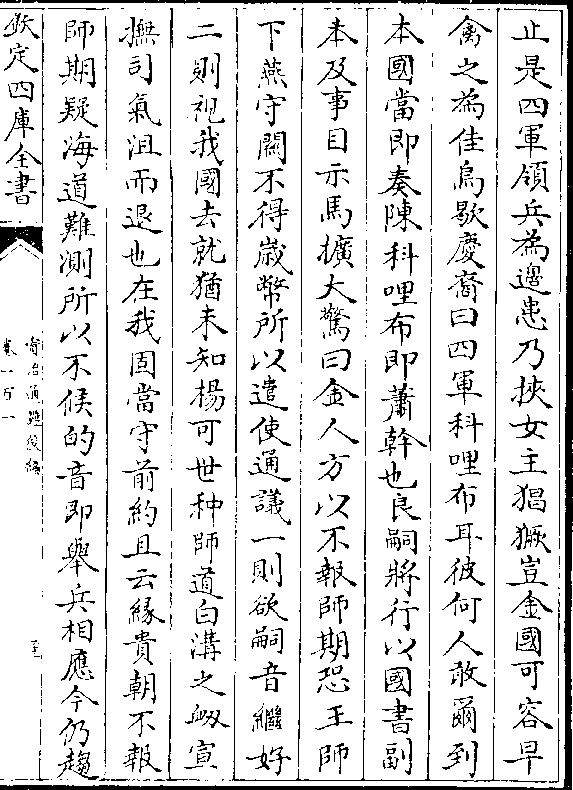 止是四軍領兵為邊患乃挾女主猖獗豈金國可容早
禽之為佳烏歇慶裔曰四軍科哩布耳彼何人敢爾到
本國當即奏陳科哩布即蕭幹也良嗣將行以國書副
本及事目示馬擴大驚曰金人方以不報師期恐王師
下燕守關不得歲幣所以遣使通議一則欲嗣音繼好
二則視我國去就猶未知楊可世种師道白溝之衂宣
撫司氣沮而退也在我固當守前約且云緣貴朝不報
師期疑海道難測所以不候的音即舉兵相應今仍趨
欽定四庫全書
資治通鑑後編
卷一百一